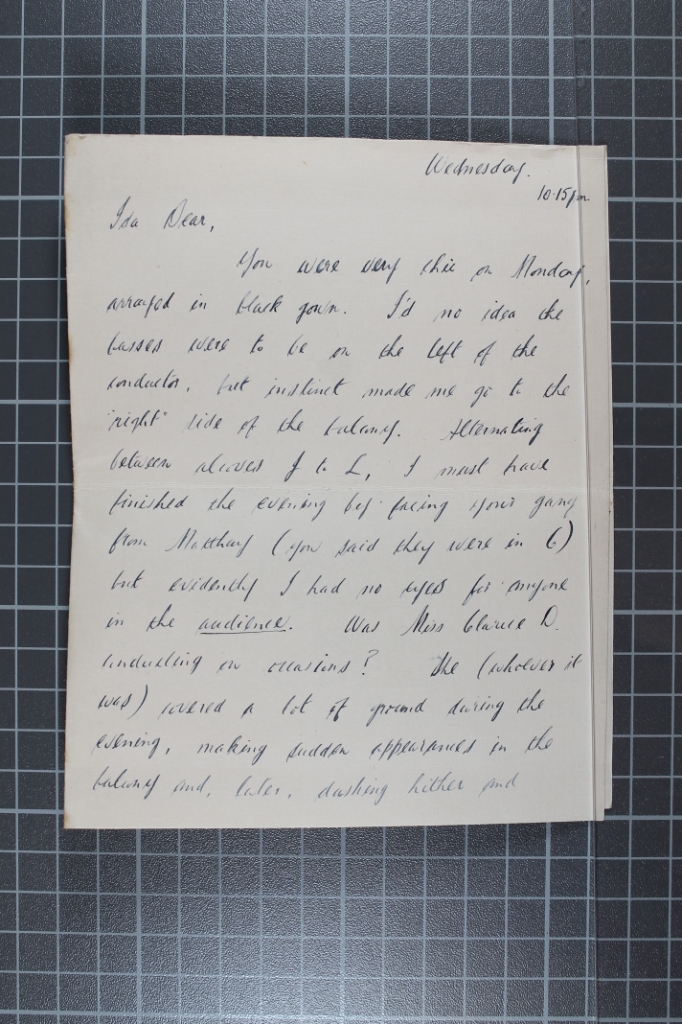 Wednesday.
10.15pm
Ida Dear,
You were very chic on Monday,
arrayed in black gown. I'd no idea the
basses were to be on the left of the
conductor, but instinct made me go to the
"right" side of the balcony. Alternating
between alcoves J to L, I must have
finished the evening by facing your gang
from Matthay (you said they were in G)
but evidently I had no eyes for anyone
in the audience. Was Miss Clarice D.
conducting on occasions? She (whoever it
was) covered a lot of ground during the
evening, making sudden appearances in the
balcony and, later, dashing hither and